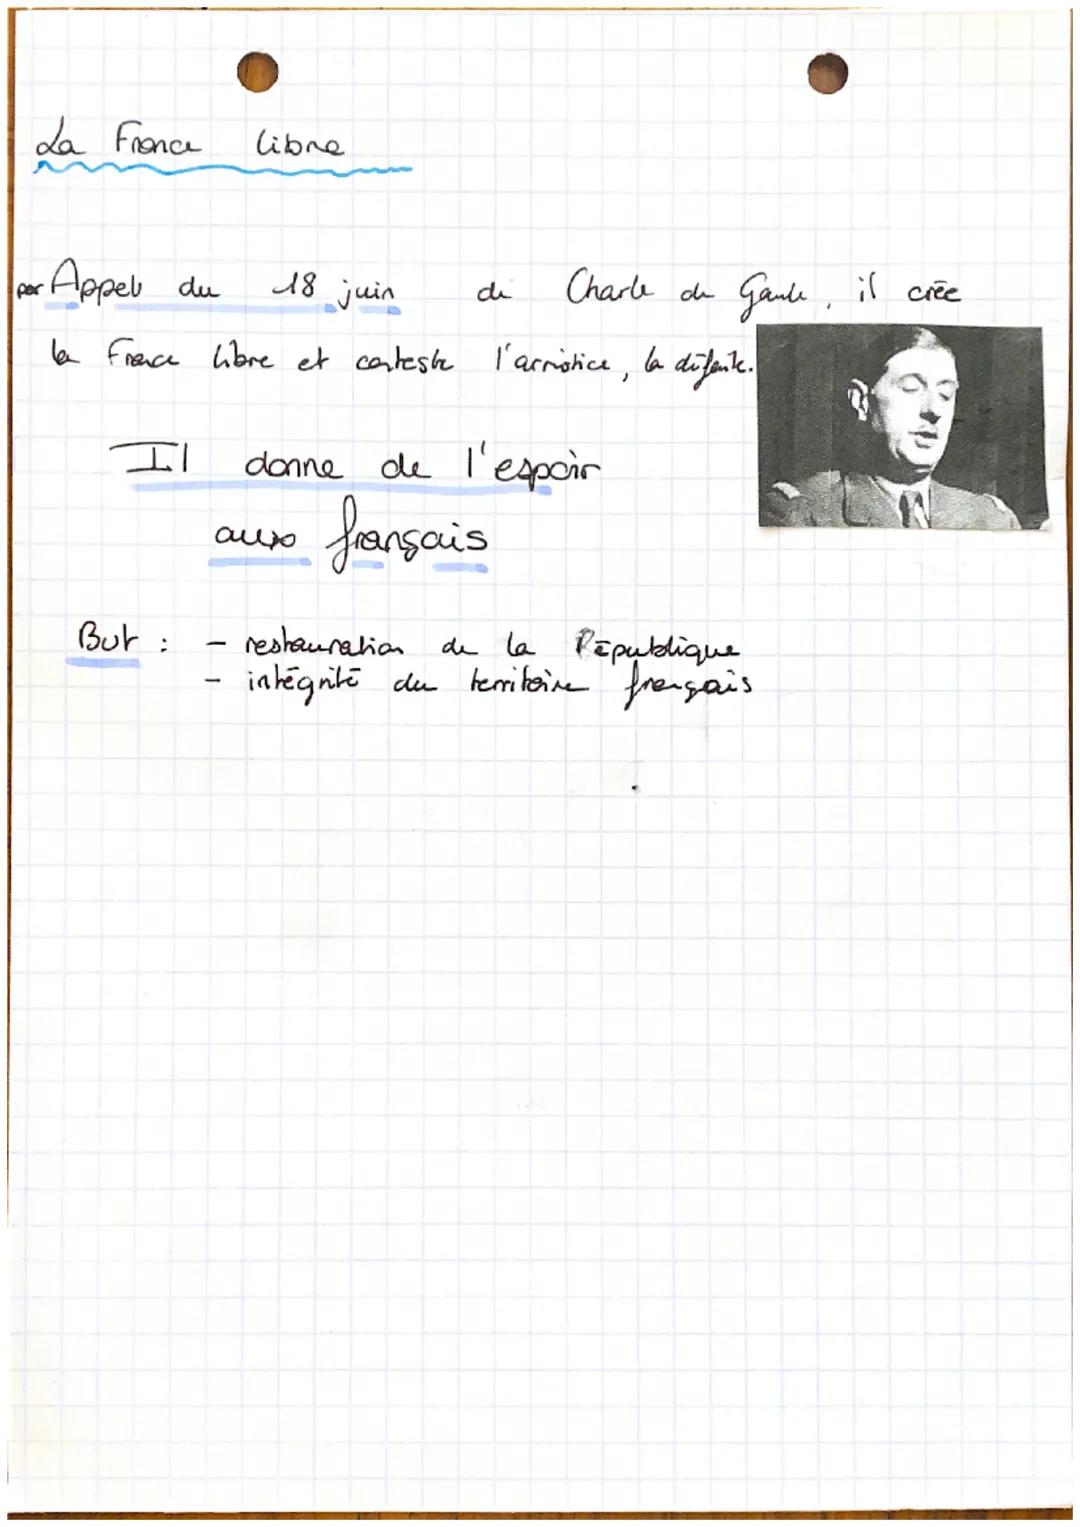 La France libre
par Appel du 18 juin de Charle de Gaule, il crée
la France libre et conteste l'armistice, la défaite.
Il donne de l'espoir
aux français
But : - restauration de la République
- intégrité du territoire français